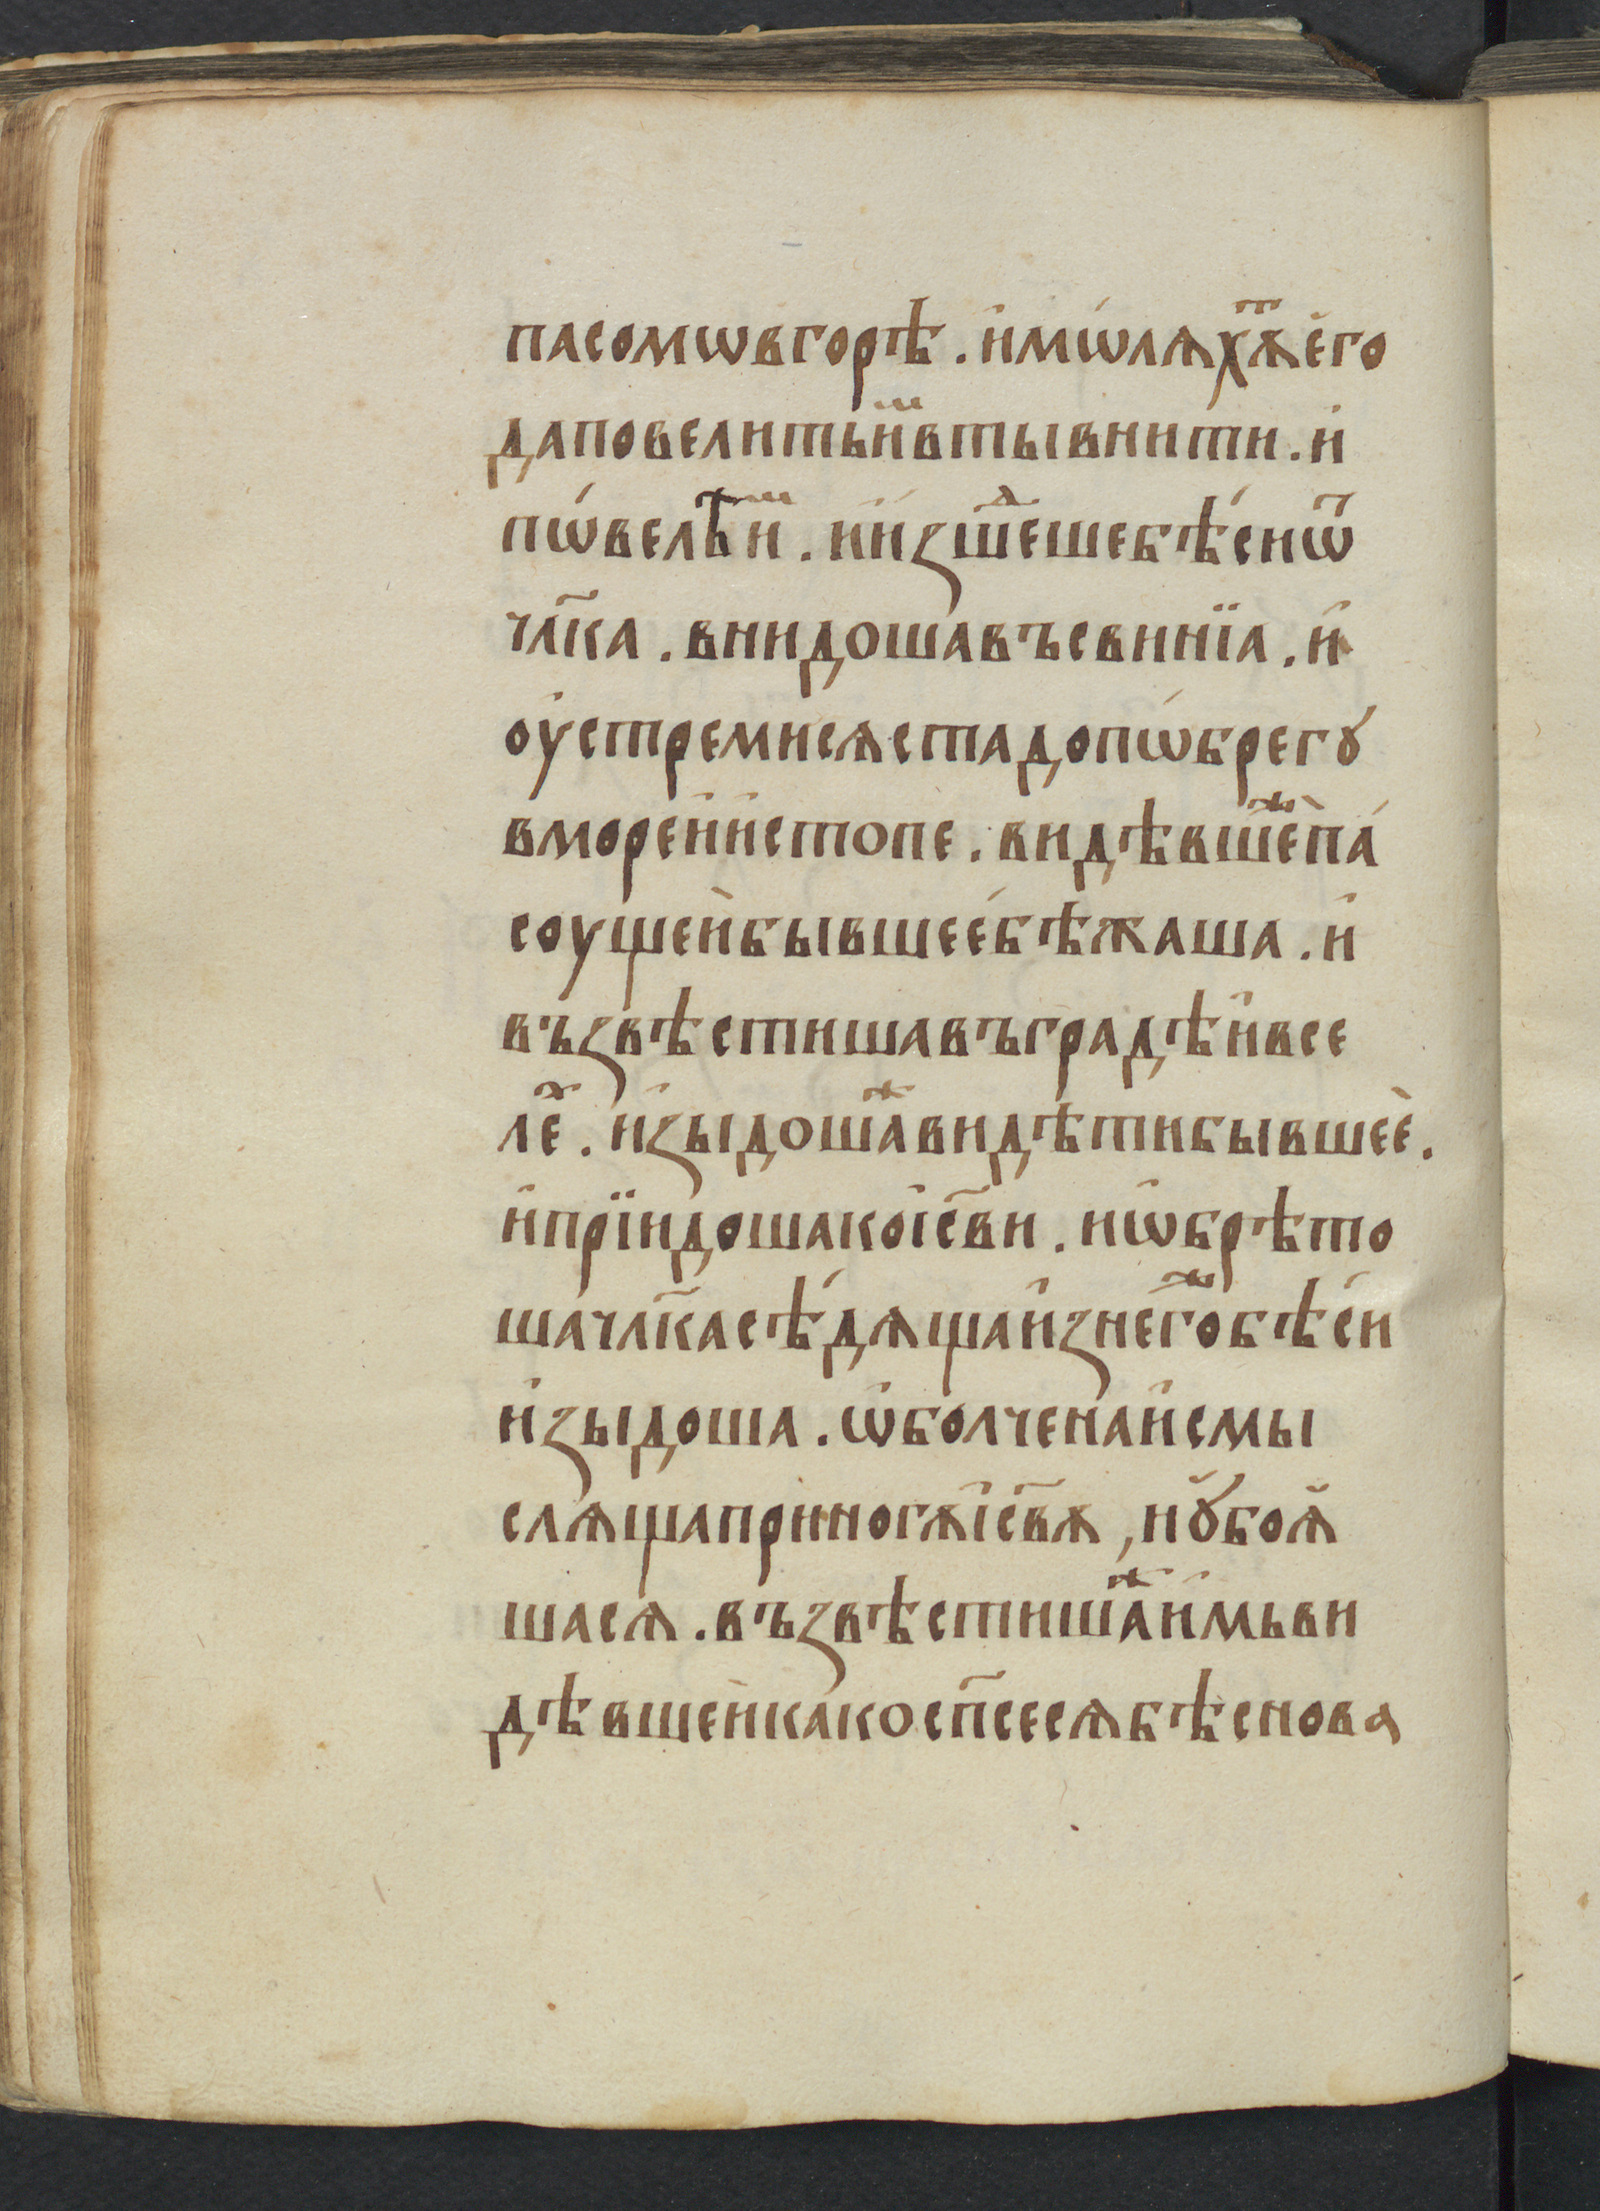 пасомѡвгорѣ. и҆мѡ́лѧхѫⷮе҆го
даповелитьи҆ⷨвтывнити. и҆
пѡ́велѣⷨ҇и. и҆и҆зшеⷣшебѣ́сиѿ
чл҃ка. внидошавъсвинїа. и҆
оу҆стремисѧстадопѡ́брегꙋ
вмореи҆и҆стопе. видѣвшеⷤпа́
соущеи҆бывшееебѣжаша. и҆
възвѣстишавъградѣи҆все
леⷯ. и҆зыдошаⷤвидѣтибывшее.
и҆прїидошакоі҆с҃ви. иѡ҆брѣто
шачл҃касѣ́дѧщаи҆знегоⷤбѣ́си
и҆зыдоша. ѡ҆болченаи҆смы
слѧщаприногꙋі҆с҃вꙋ, и҆ꙋбоѧ
шасѧ. възвѣстишаⷤи҆мьви
дѣвшеи҆како сп҃сесѧбѣснова